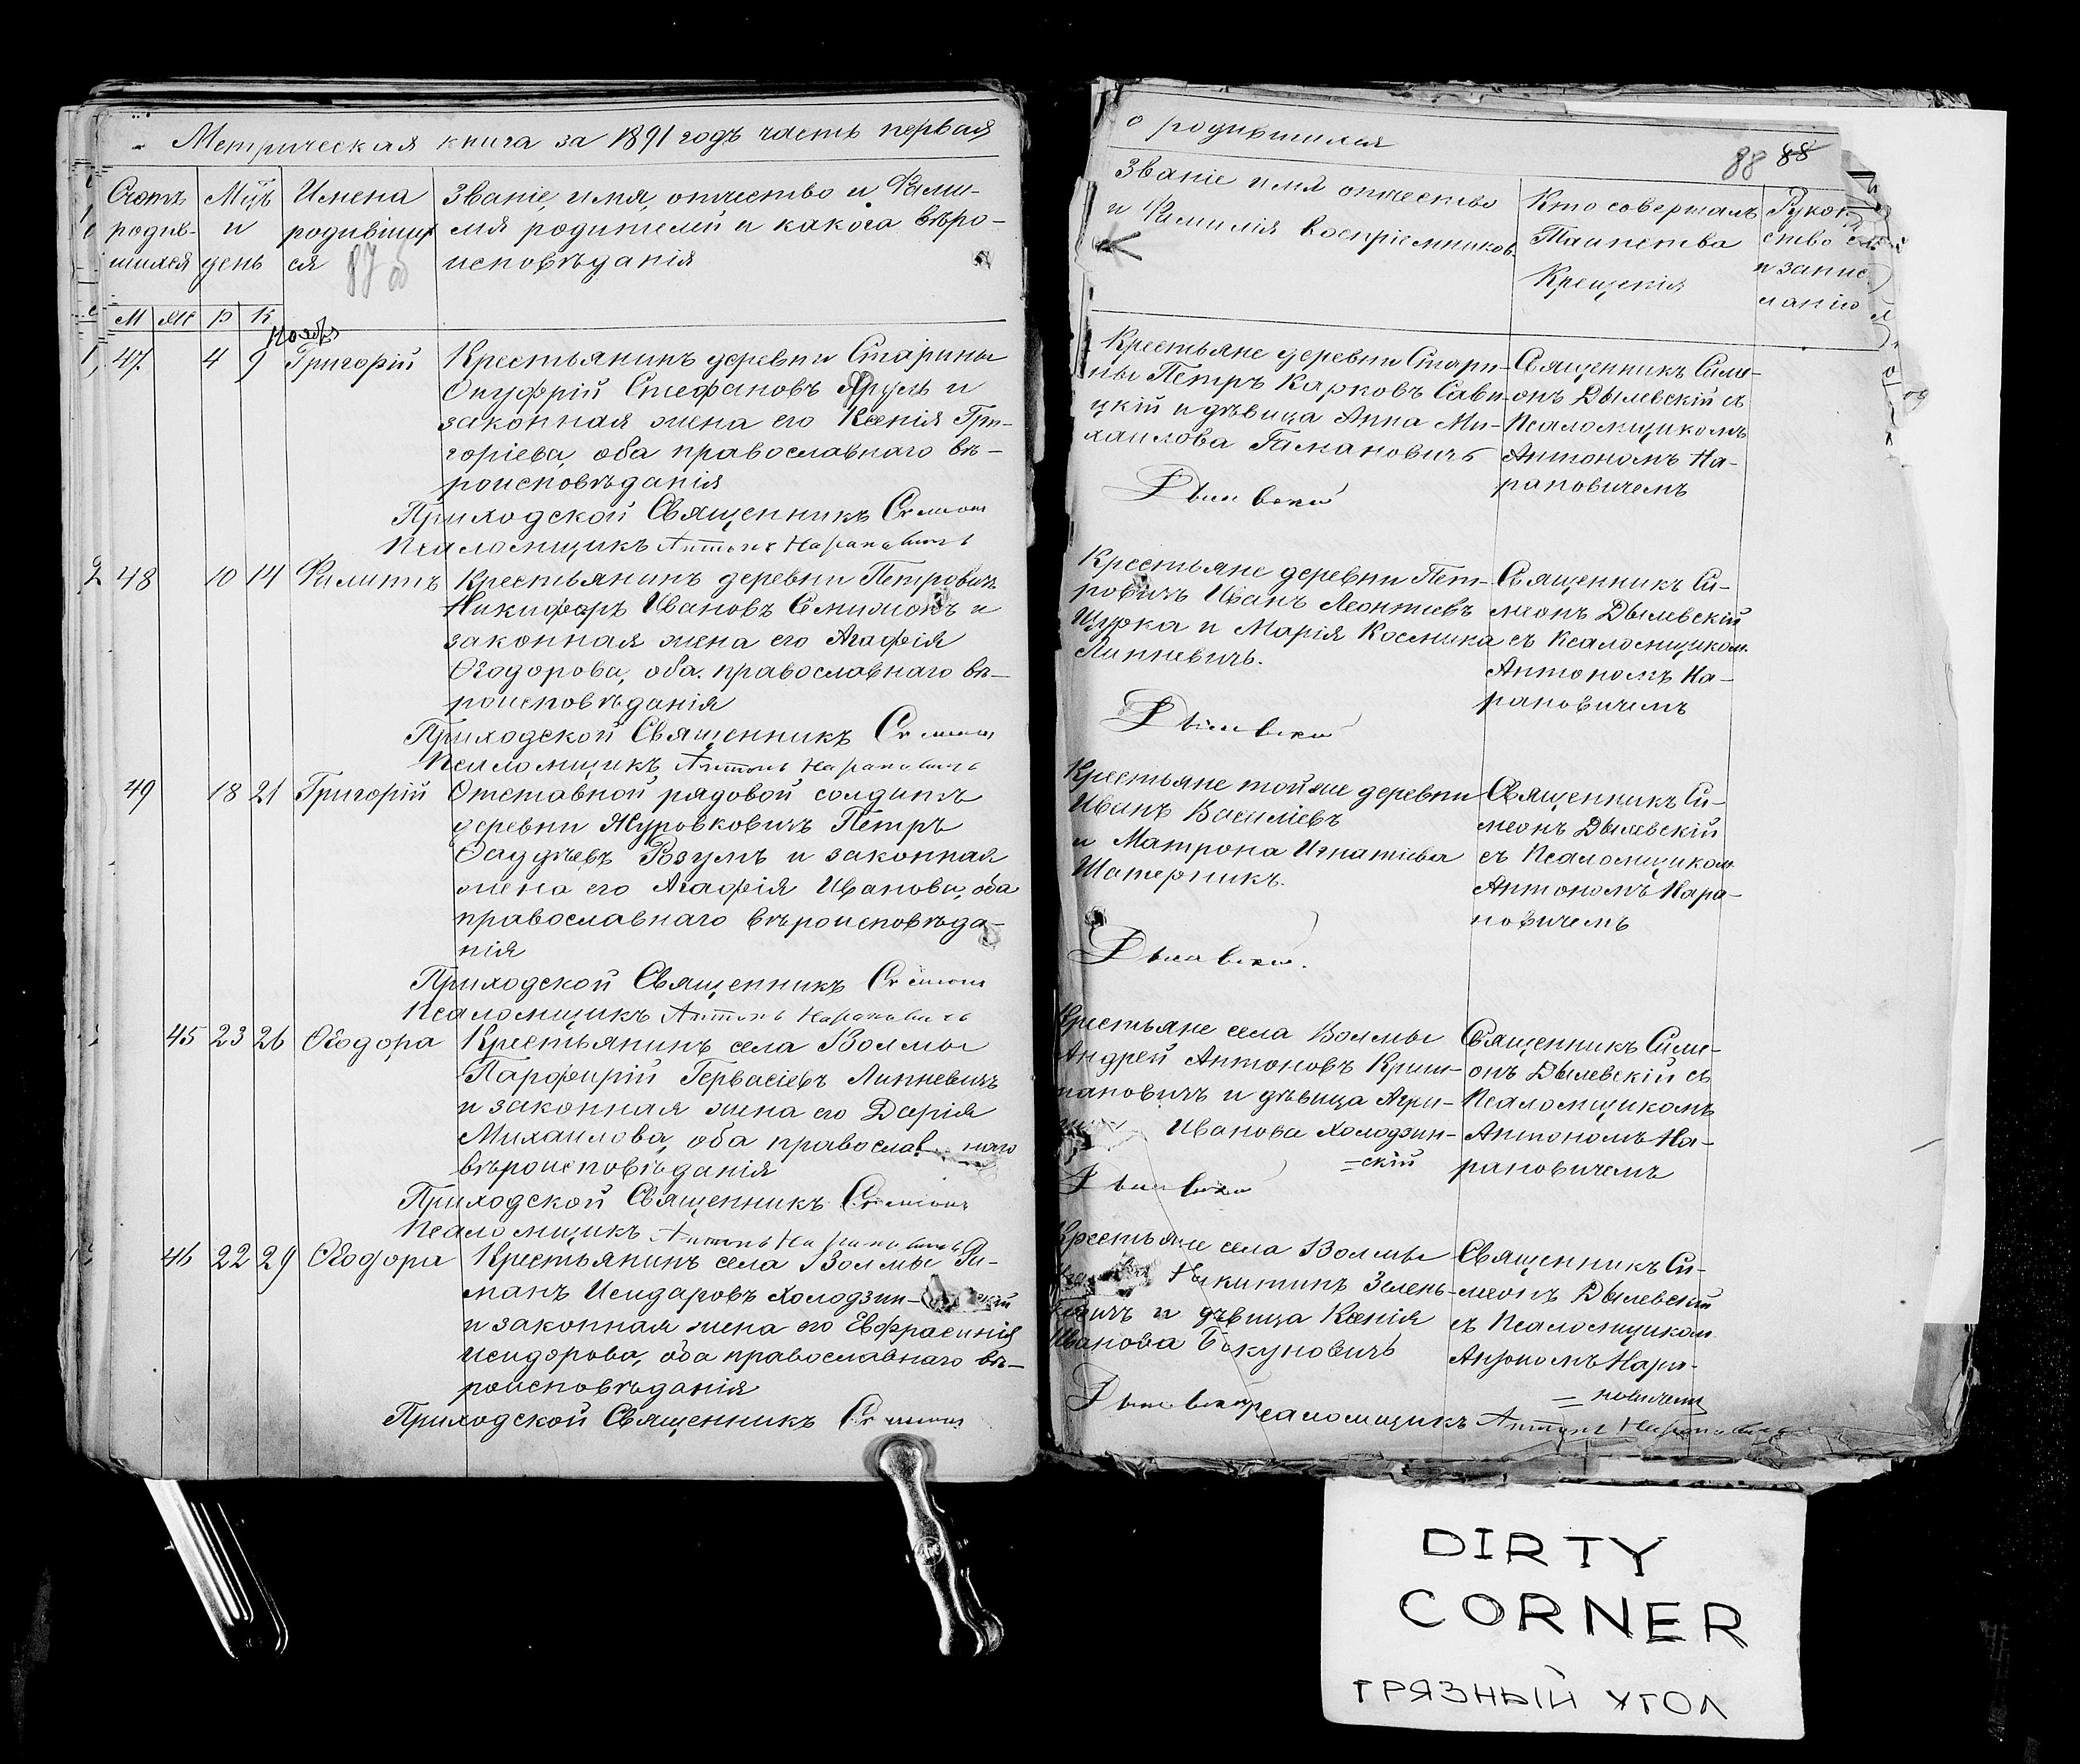 Метрическая книга за 1891 годъ часть первая
Счетъ родив-шихся
Мцъ и день
Имена родившихся
87 об
Званіе, имя, отчество и Фами-
лія родителей и какого вѣро-
исповѣданія
М Ж Р К
Ноябрь
47. 4 9 Григорій
Крестьянинъ деревни Старины
Онуфрій Стефановъ Яруль и
законная жена его Ксенія Гри-
горіева, оба православнаго вѣ-
роисповѣданія
Приходской Священникъ Симеонъ
Псаломщикъ Антонъ Нарановичъ
48 10 14 Филиппъ
Крестьянинъ деревни Петровичъ
Никифоръ Ивановъ и
законная жена его Агафія
Ѳеодорова, оба православнаго вѣ-
роисповѣданія
Приходской Священникъ Симеонъ
Псаломщикъ Антонъ Нарановичъ
49 18 21 Григорій
Отставной рядовой солдатъ
деревни Журовковичъ Петръ
Ѳаддѣевъ Розумъ и законная
жена его Агафія Иванова, оба
православнаго вѣроисповѣда-
нія
Приходской Священникъ Симеонъ
Псаломщикъ Антонъ Нарановичъ
45 23 26 Ѳеодора
Крестьянинъ села Волмы
Парфирій Гервасіевъ Липневичъ
и законная жена его Дарія
Михаилова, оба православнаго
вѣроисповѣданія
Приходской Священникъ Симеонъ
Псаломщикъ Антонъ Нарановичъ
46 22 29 Ѳеодора
Крестьянинъ села Волмы Ро-
манъ Исидаровъ Холодзин-скій
и законная жена его Евфрасинія
Исидорова, оба православнаго вѣ-
роисповѣданія
Приходской Священникъ Симеонъ
о родившихся
88 88
Званіе имя отчество
и Фамилія воспріемниковъ
Кто совершалъ
Таинства
Крещенія
Рукоп
ство
и запис
ланію
Крестьяне деревни Стари-
ны Петръ Карковъ Сави-
цкій и дѣвица Анна Ми-
хаилова Гаманович
Дылевскій
Священникъ Симе-
онъ Дылевскій съ
Псаломщикомъ
Антономъ На-
рановичемъ
Крестьяне деревни Пет-
ровичъ Иванъ Леонтіевъ
Щурка и Марія Косьмина
Липневичъ.
Дылевскій
Священникъ Си-
меонъ Дылевскій
съ Псаломщиком
Антономъ На-
рановичемъ
Крестьяне той же деревни
Иванъ Василіевъ
и Матрона Игнатіева
Шатерникъ.
Дылевскій.
Священникъ Си-
меонъ Дылевскій
съ Псаломщиком
Антономъ Нара-
новичемъ
Крестьяне села Волмы
Андрей Антоновъ Криш-
тановичъ и дѣвица Агри-
Иванова Холодзин-
=скій
Дылевскій
Священникъ Симе-
онъ Дылевскій съ
Псаломщикомъ
Антономъ На-
рановичемъ
Крестьяне села Волмы
Никитинъ Зень-
ковичъ и дѣвица Ксенія
Иванова Бокуновичъ
Дылевскій
Священникъ Си-
меонъ Дылевскій
съ Псаломщиком
Антономъ Нара-
=новичемъ
Псаломщикъ Антонъ Нарановичъ
DIRTY
CORNER
ГРЯЗНЫЙ УГОЛ